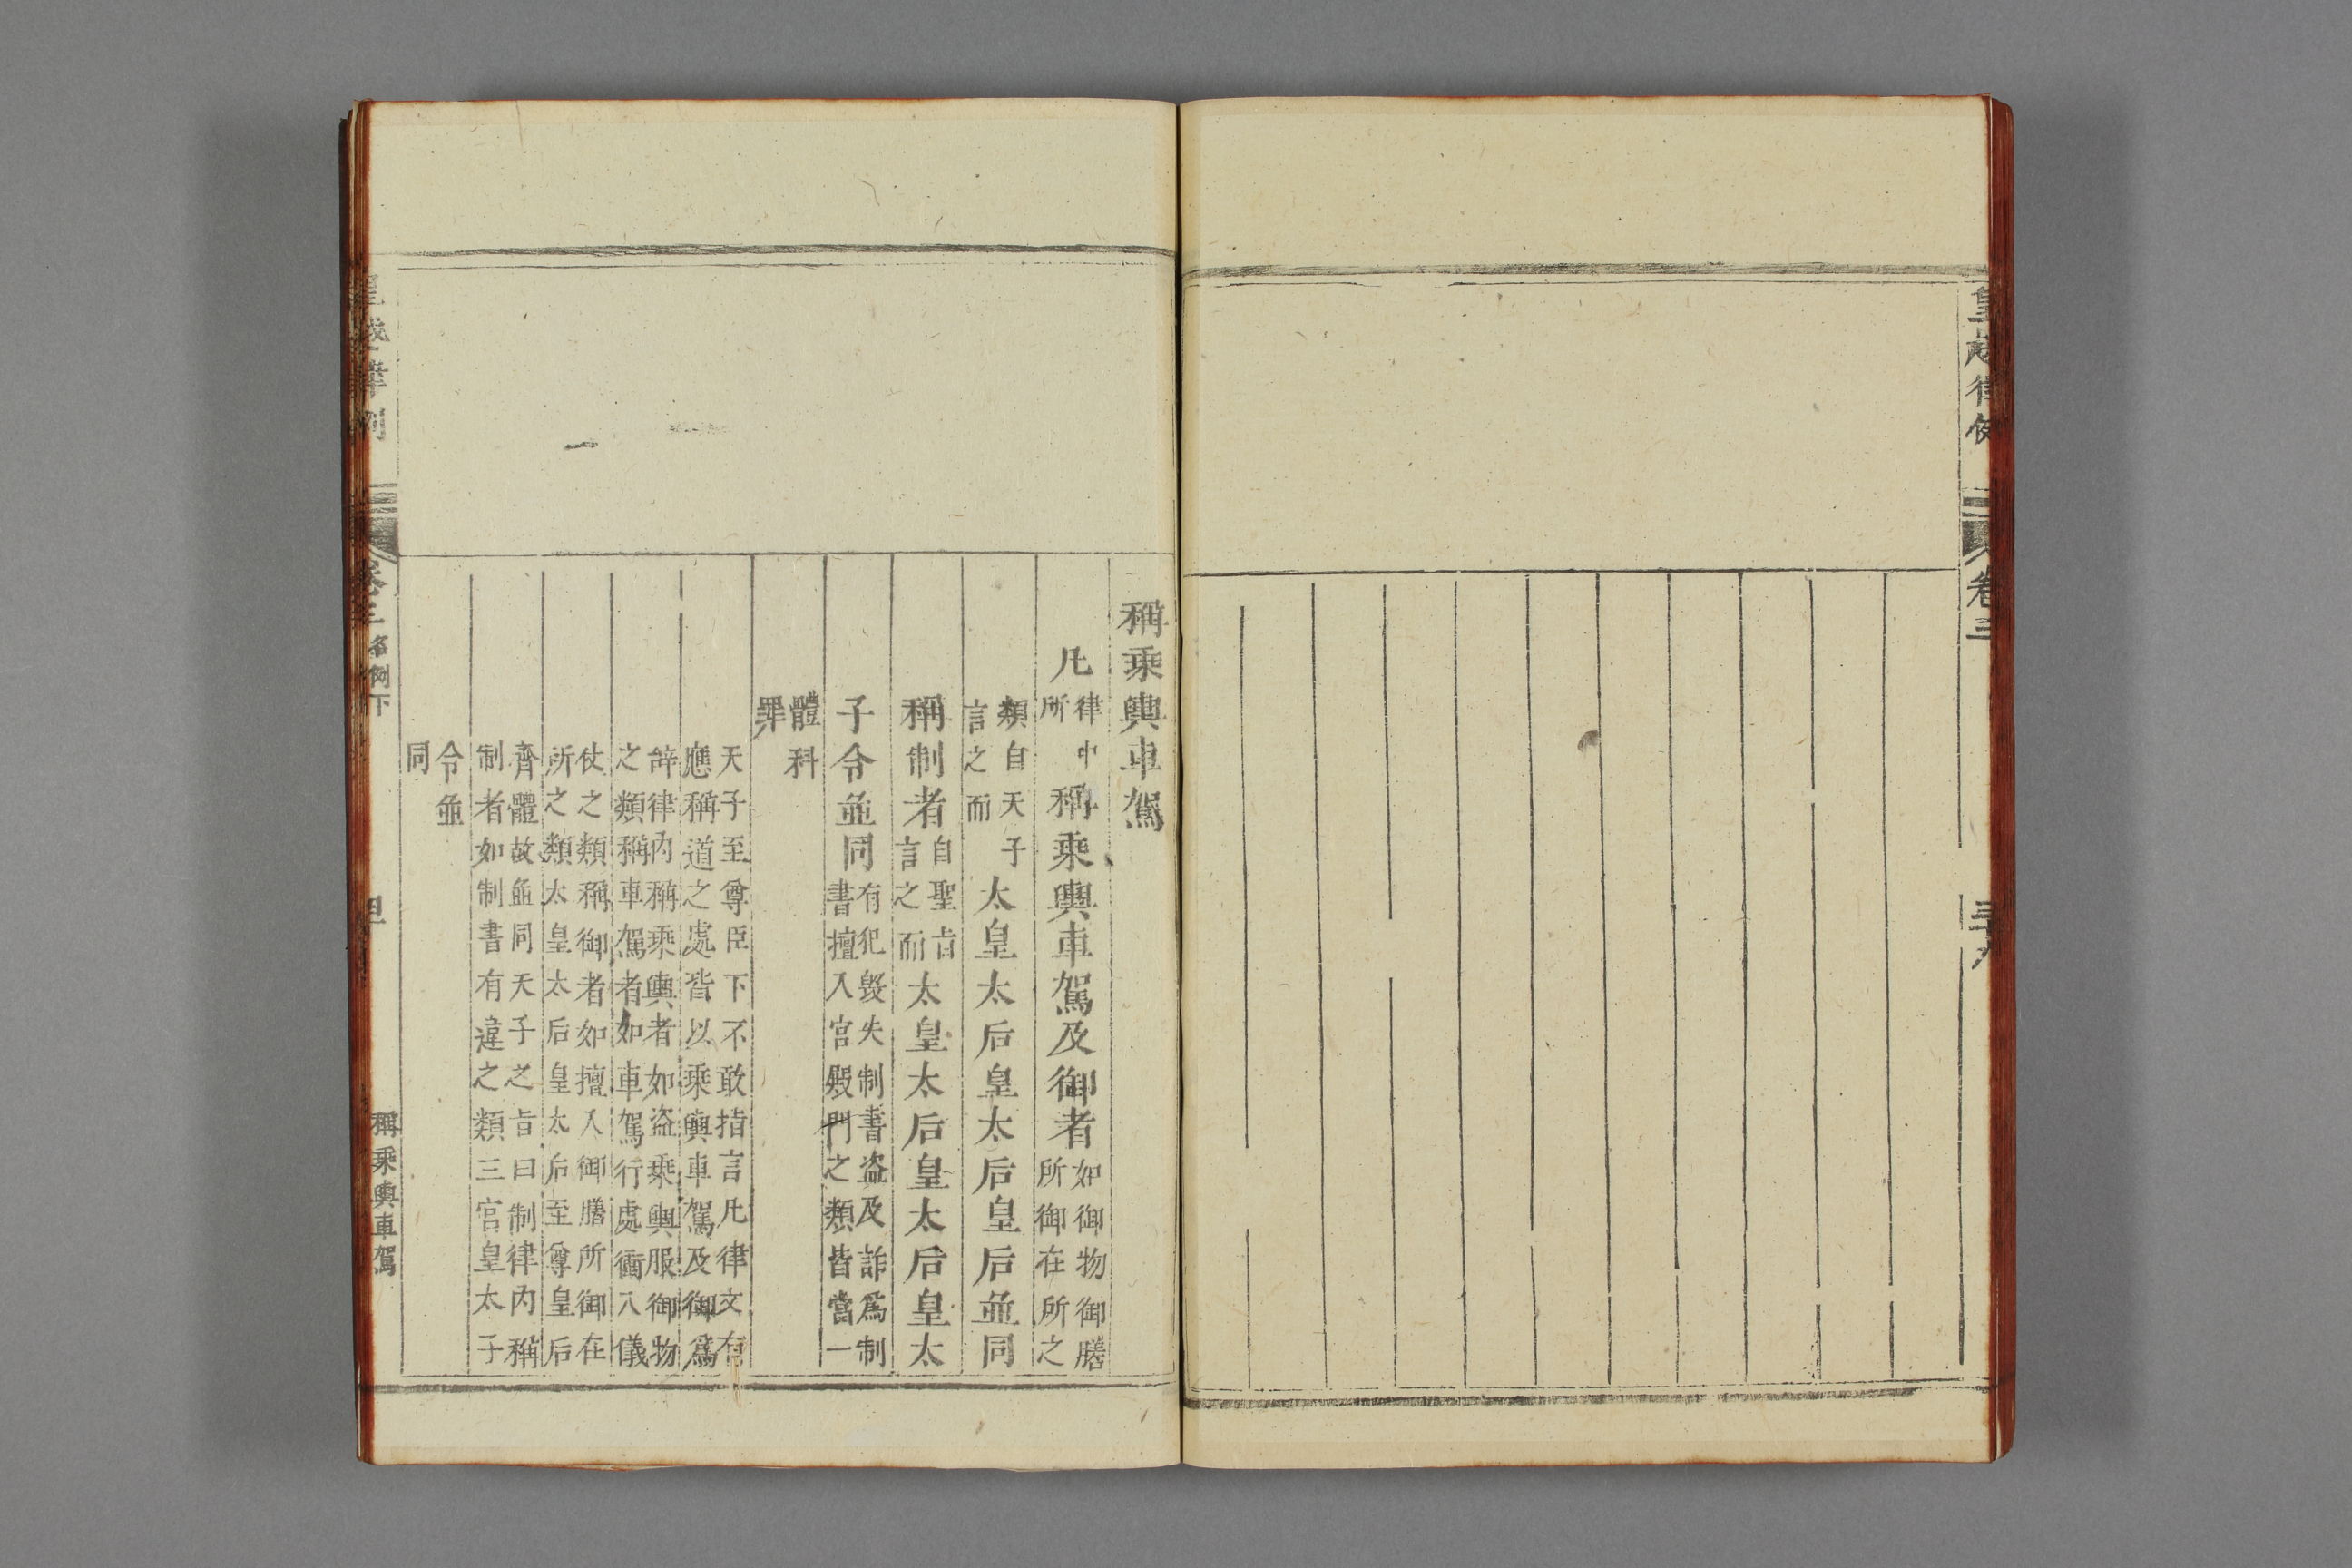 皇越律例
卷三
稱乘輿車駕
凢律中所稱乘輿車駕及御者如御物御膳所御在所之
類自天子言之而太皇太后皇太后皇后並同
稱制者自聖旨言之而太皇太后皇太后皇太
子令並同有犯毁失制書盗及詐爲制書擅入宫殿門之類皆當一
體科罪
天子至尊臣下不敢指言凢律文有
應稱道之處皆以乘輿車駕及御爲
辞律内稱乘輿者如盗乘輿服御物
之類稱車駕者如車駕行處衝入儀
仗之類稱御者如擅入御膳所御在
所之類太皇太后皇太后至尊皇后
齊體故並同天子之旨曰制律内稱
制者如制書有違之類三宫皇太子
令並
同
皇越律例
卷三
名例下
稱乘輿車駕